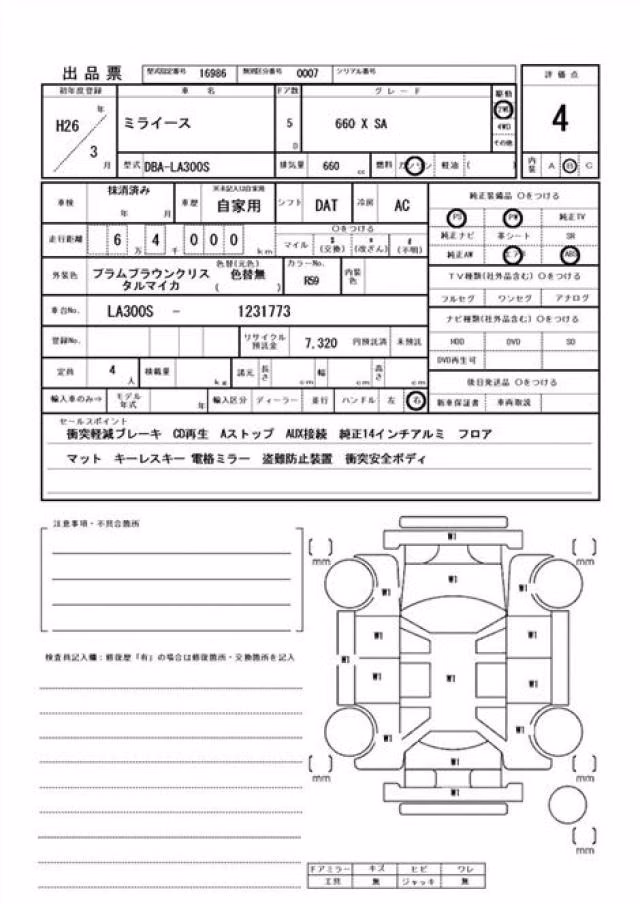 出品票 型式指定番号 16986 類別区分番号 0007 シリアル番号
評価点
4
内装 A B C
初年度登録 車名 ドア数 グレード 駆動
H26 年 3 月
ミライース 5 D 660 X SA
2WD
4WD
その他
型式 DBA-LA300S 排気量 660 cc 燃料 ガソリン 軽油 ( )
車検 抹消済み 年 月 車歴 ※未記入は自家用 自家用 シフト DAT 冷房 AC
走行距離 6 万 4 千 0 0 0 km
○をつける
マイル $ (交換) * (改ざん) # (不明)
外装色 プラムブラウンクリスタルマイカ
色替(元色) 色替無 ( )
カラーNo. R59 内装色
車台No. LA300S - 1231773
登録No. リサイクル預託金 7,320 円預託済 未預託
定員 4 人 積載量 kg 諸元 長さ cm 幅 cm 高さ cm
輸入車のみ⇒ モデル年式 年 輸入区分 ディーラー 並行 ハンドル 左 右
純正装備品 ○をつける
PS PW 純正TV
純正ナビ 革シート SR
純正AW エアB ABS
TV種類(社外品含む) ○をつける
フルセグ ワンセグ アナログ
ナビ種類(社外品含む) ○をつける
HDD DVD SD
DVD再生可
後日発送品 ○をつける
新車保証書 車両取説
セールスポイント
衝突軽減ブレーキ CD再生 Aストップ AUX接続 純正14インチアルミ フロア
マット キーレスキー 電格ミラー 盗難防止装置 衝突安全ボディ
注意事項・不具合箇所
検査員記入欄:修復歴「有」の場合は修復箇所・交換箇所を記入
W1
[ ] mm [ ] mm
W1
W1 W1
W1 W1
W1
W1 W1 W1
W1 W1
W1
[ ] mm [ ] mm
W1
[ ] mm
ドアミラー キズ ヒビ ワレ
工具 無 ジャッキ 無